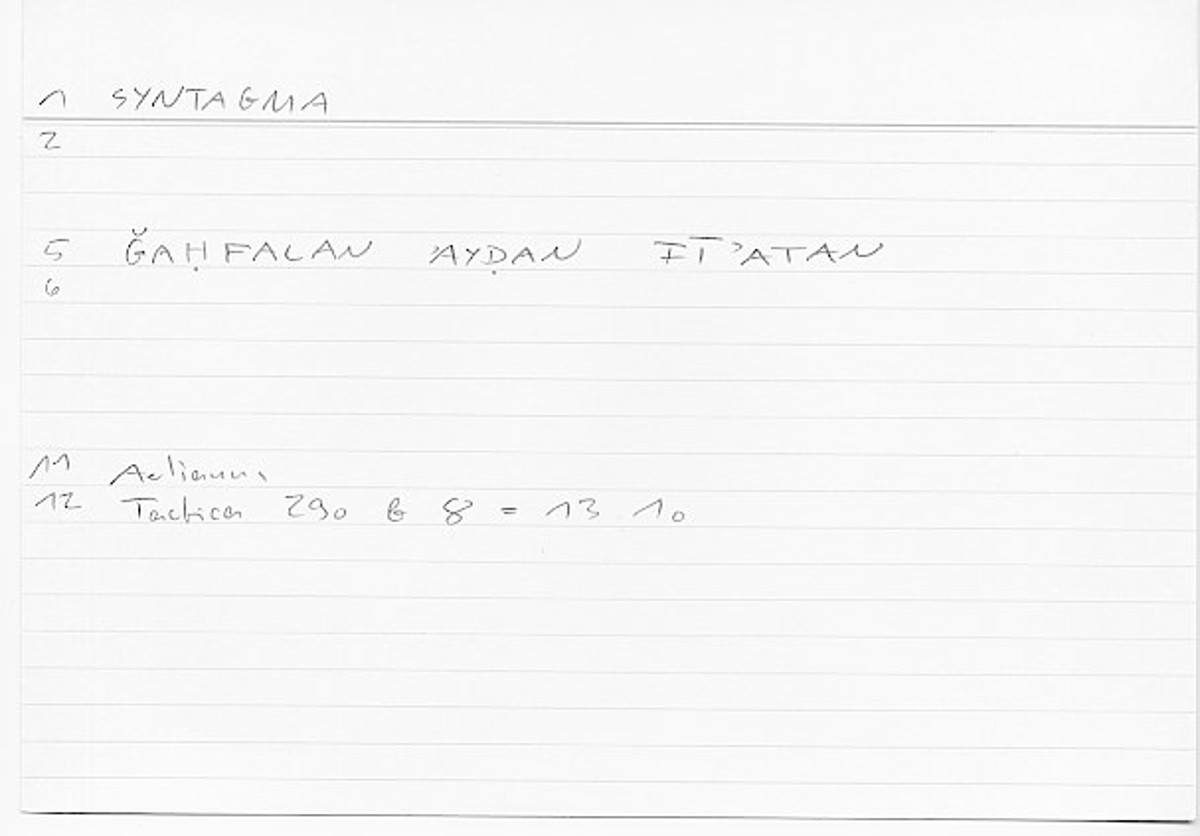 1 SYNTAGMA
2
5 ǦAḤFALAN ʾAYḌAN FĪʾATAN
6
11 Aelianus
12 Tactica 290 G 8 = 13 10